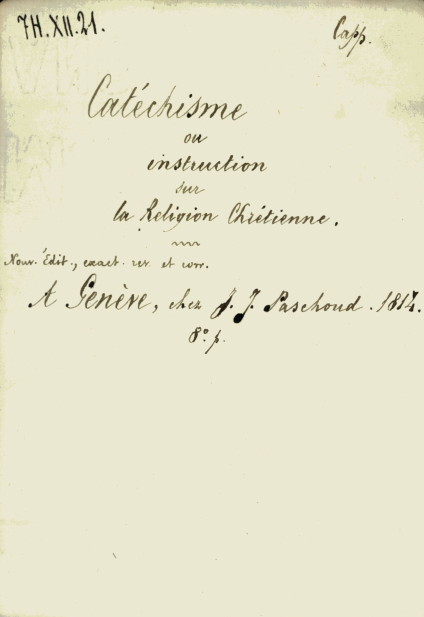 7H.XII.21.
Capp.
Catéchisme
ou
instruction
sur
la Religion Chrétienne.
Nouv. Édit., exact. rev. et corr.
A Genève, chez J. J. Paschoud. 1814.
8° p.